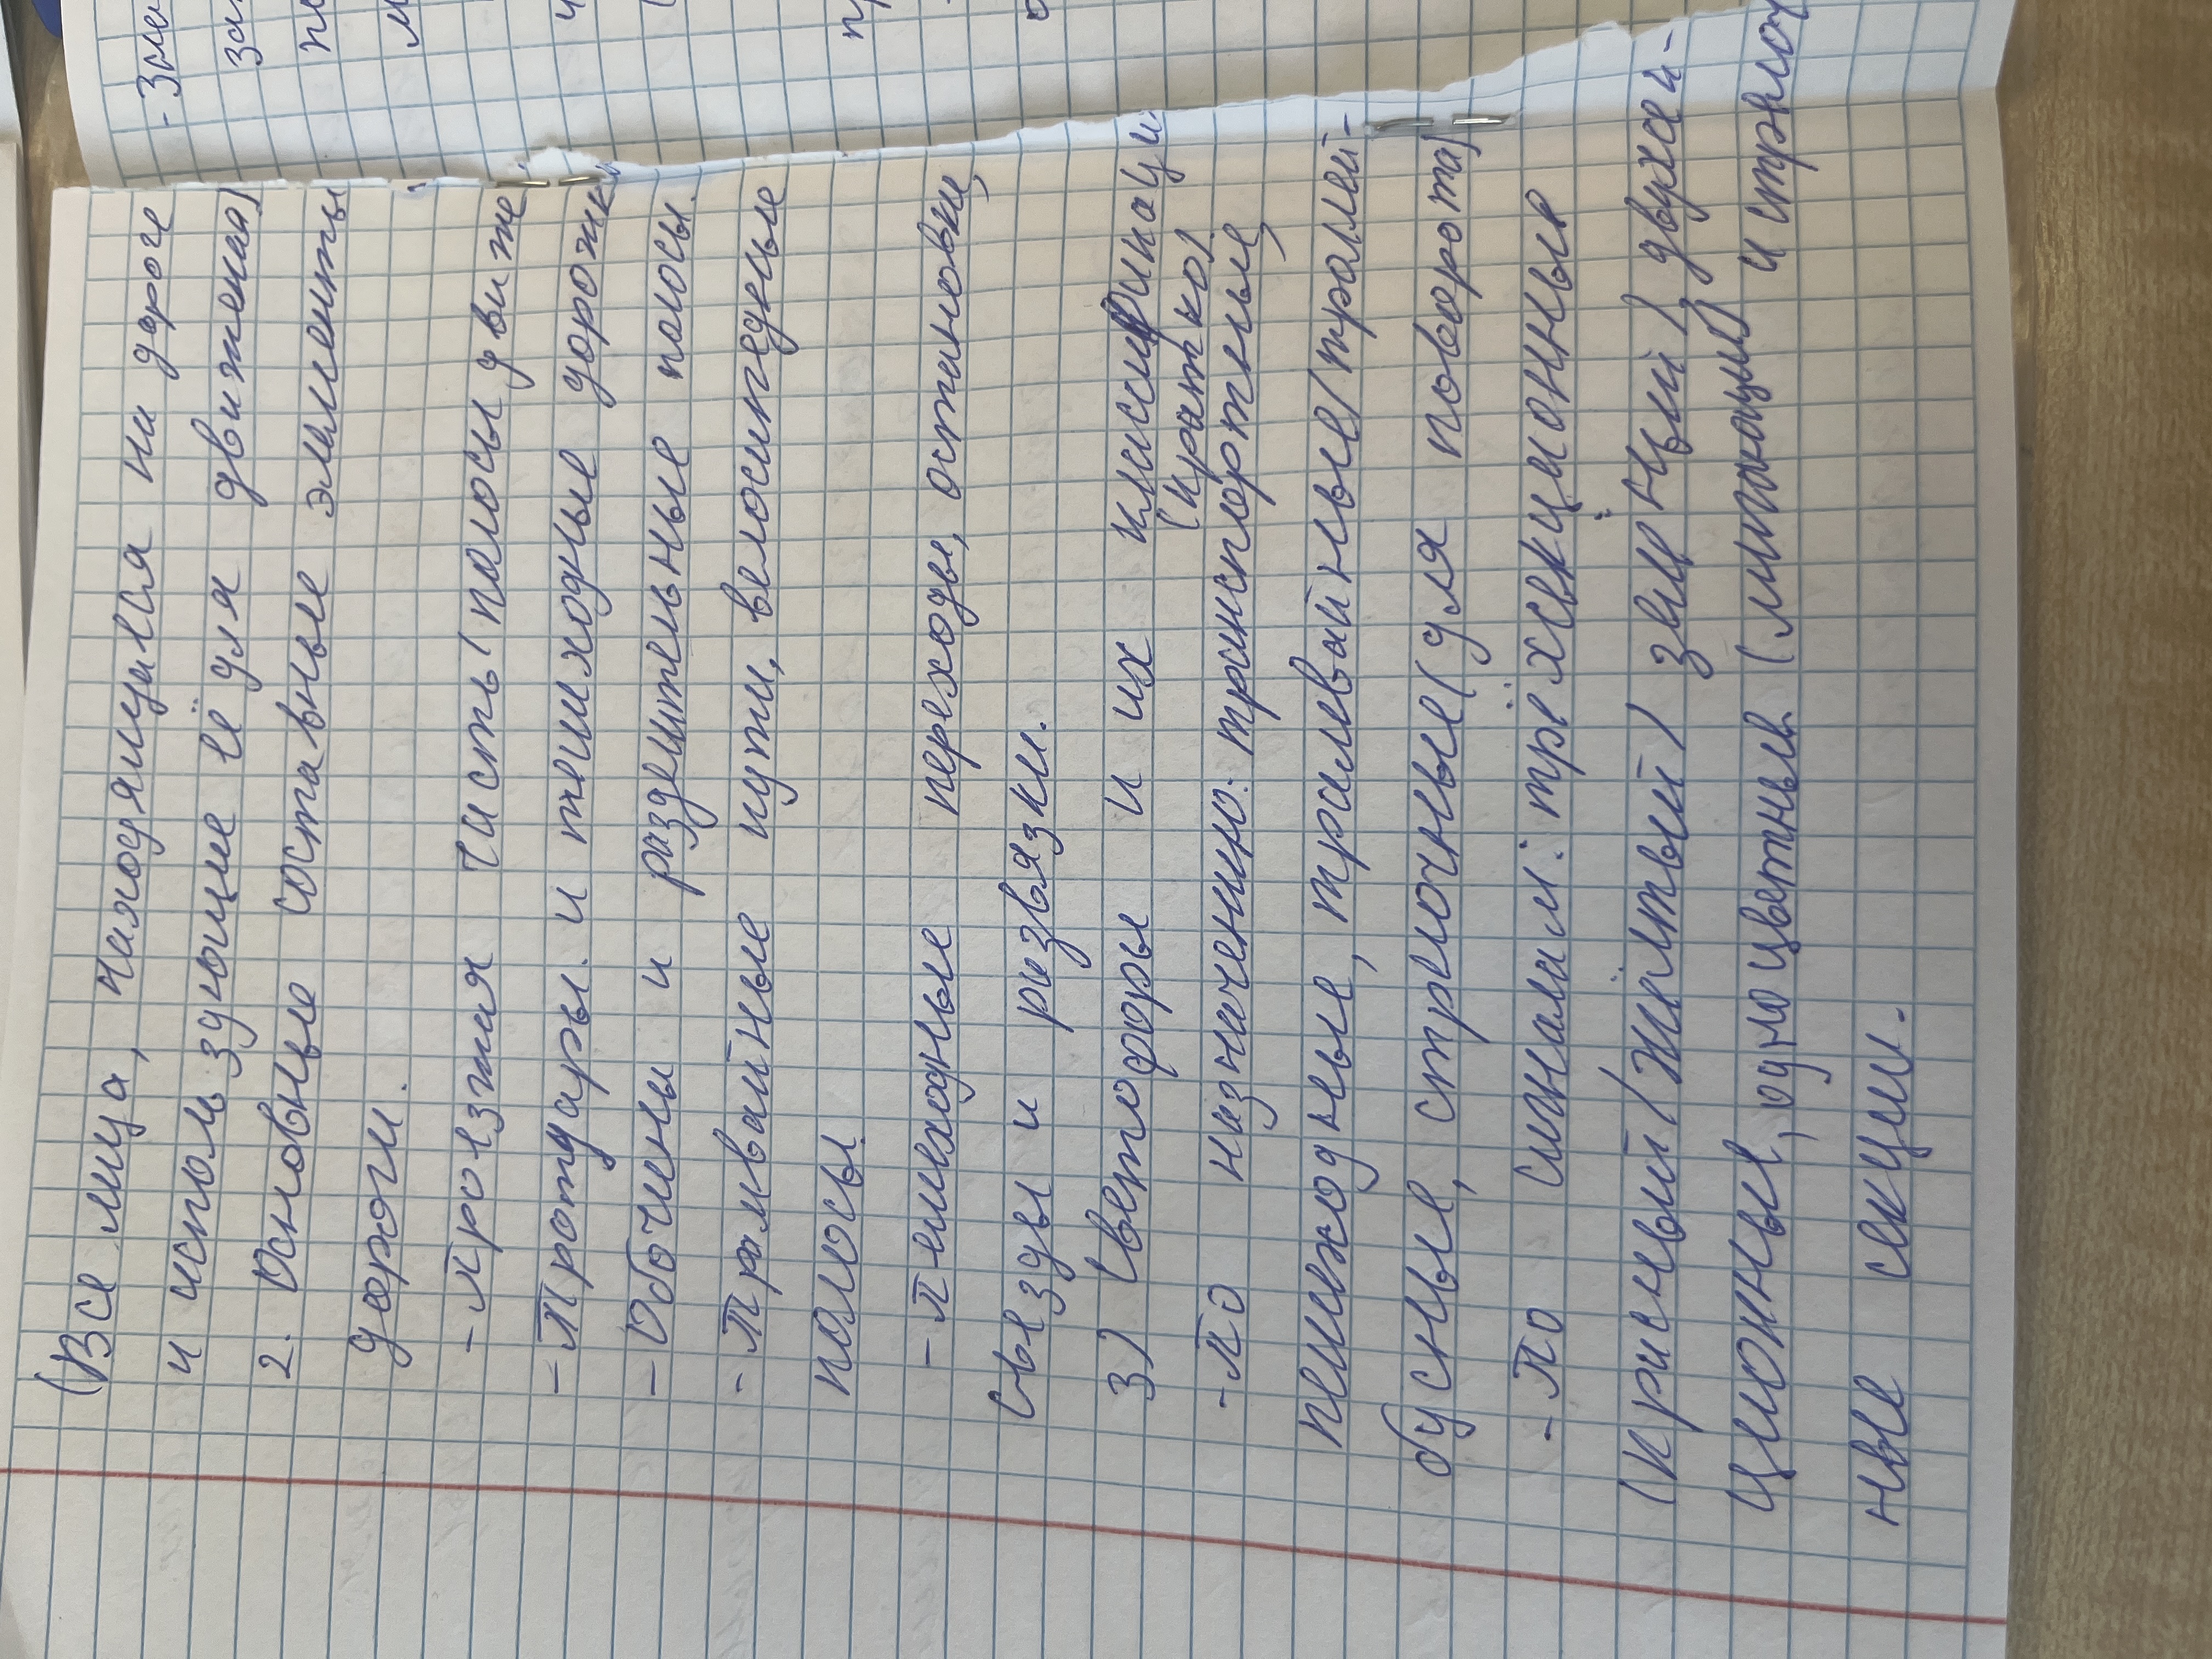 (Все лица, находящиеся на дороге
и использующие её для движения)
2. Основные составные элементы
дороги.
- проезжая часть (полосы движе
- Тротуары и пешеходные дорожки
- Обочины и разделительные полосы.
- Трамвайные пути, велосипедные
полосы.
- Пешеходные переходы, остановки,
съезды и развязки.
3) Светофоры и их классификации
(кратко)
- По назначению: транспортные,
пешеходные, трамвайные (троллей-
бусные, стрелочные (для поворота)
- По сигналам: трёхсекционный
(красный) (жёлтый) зелёный) двухсек-
ционные, одноцветные (мигающий) и стрелоч
ные секции.
- Зале
за